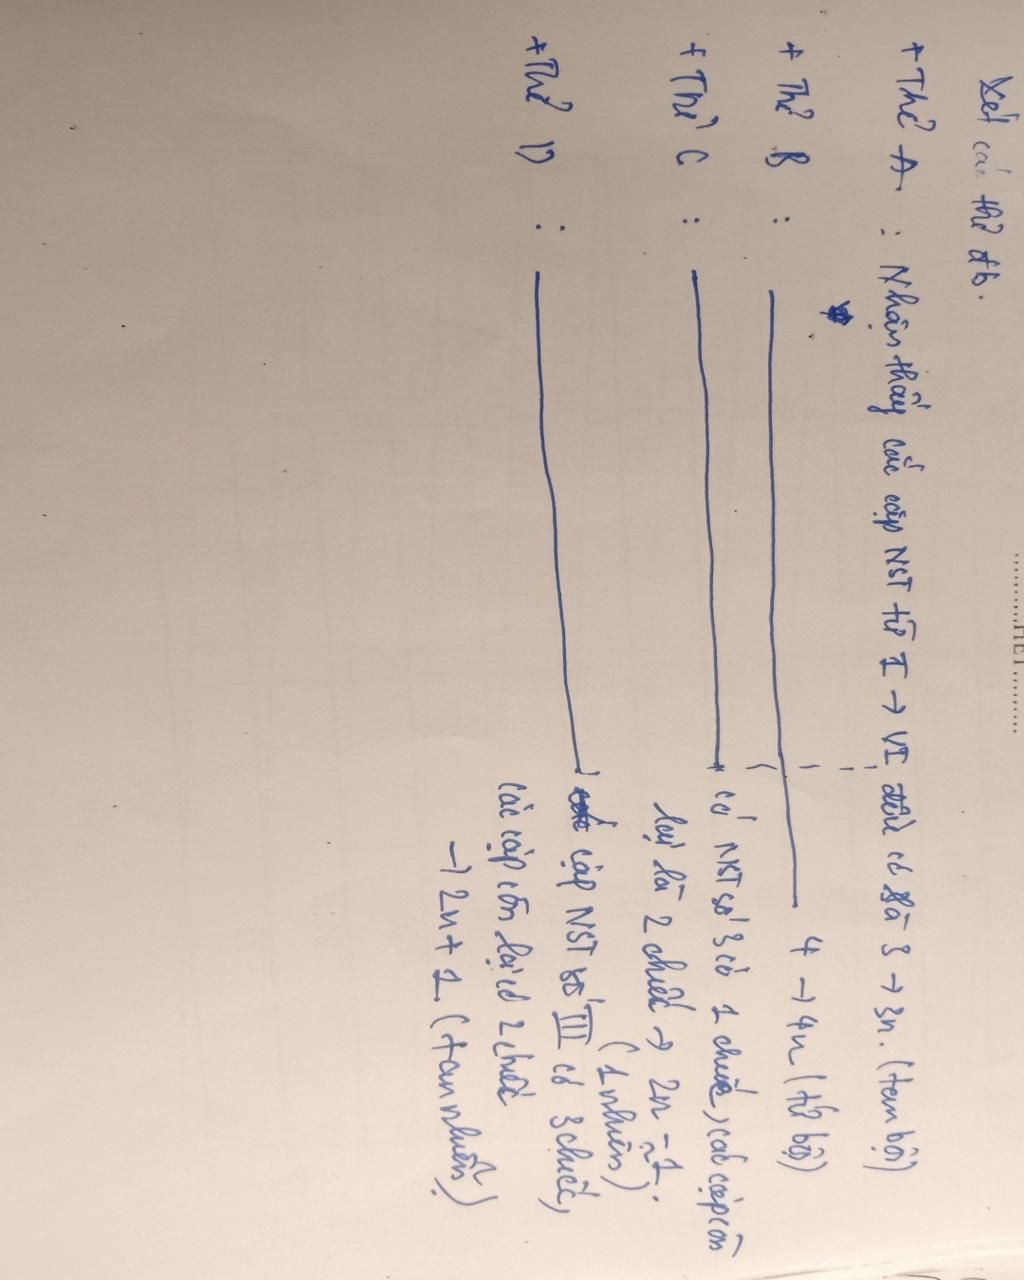 .........HẾT.........
Xét các thể đb.
+ Thể A : Nhận thấy các cặp NST từ I → VI đều có là 3 → 3n. (tam bội)
+ Thể B : 4 → 4n (tứ bội)
+ Thể C : có NST số 3 có 1 chiếc, các cặp còn
lại là 2 chiếc → 2n - 1.
(1 nhiễn)
+ Thể D : cặp NST số III có 3 chiếc,
các cặp còn lại có 2 chiếc
→ 2n + 1 (tam nhiễn)